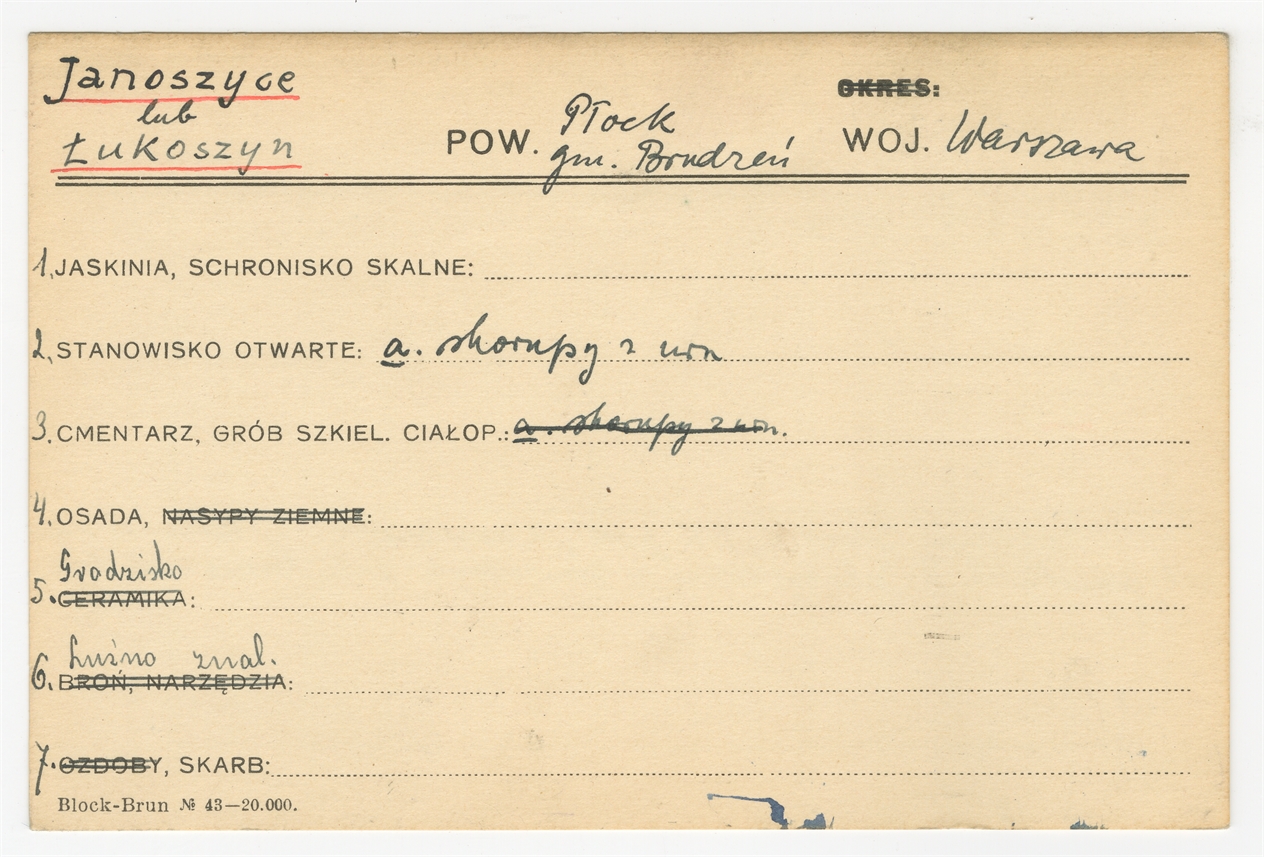 Janoszyce
lub
Łukoszyn
OKRES:
POW. Płock
gm. Brudzeń
WOJ. Warszawa
1. JASKINIA, SCHRONISKO SKALNE:
2. STANOWISKO OTWARTE: a. skorupy z urn
3. CMENTARZ, GRÓB SZKIEL. CIAŁOP.: a. skorupy z urn.
4. OSADA, NASYPY ZIEMNE:
Grodzisko
5. CERAMIKA:
Luźno znal.
6. BROŃ, NARZĘDZIA:
7. OZDOBY, SKARB:
Block-Brun № 43—20.000.